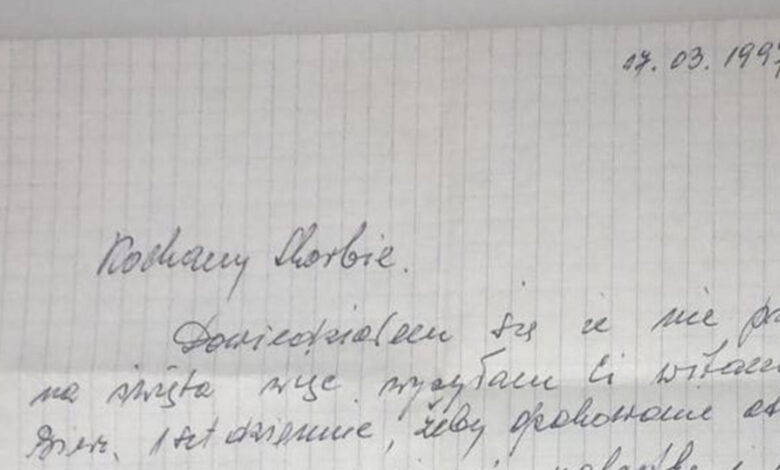 17.03.1997
Kochany Skarbie.
Dowiedziałem się że nie
na święta więc wysyłam Ci
Bierz 1 szt dziennie, żeby opakowanie